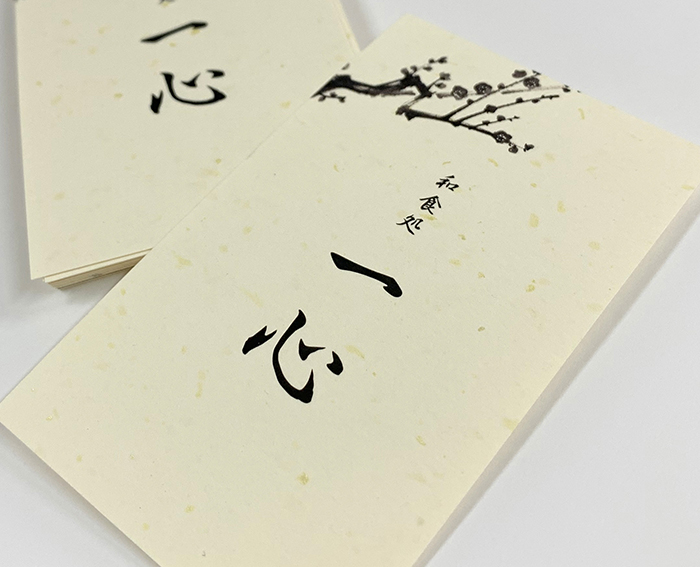 和食処
一心
一心